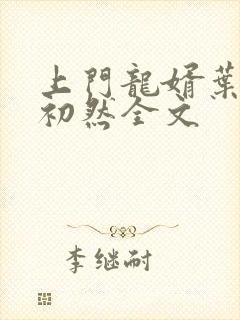 上門龍婿葉
初然全文
李继耐